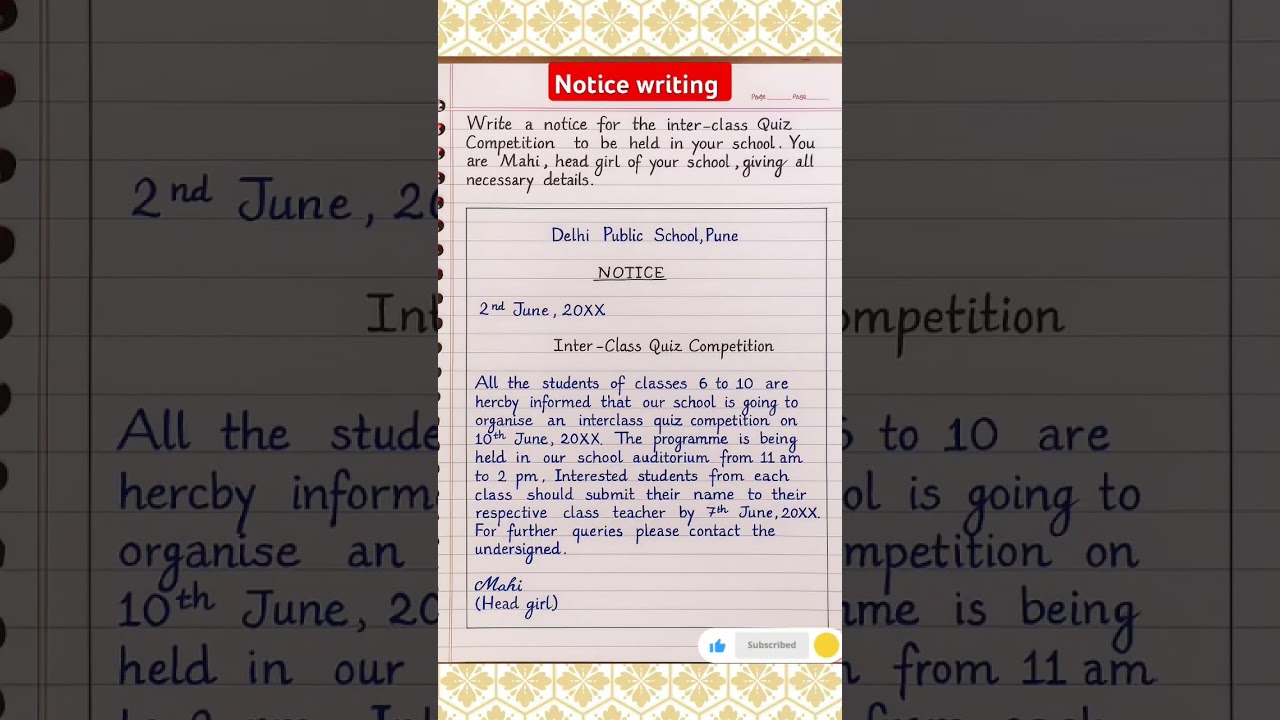 Notice writing
Page Page
Write a notice for the inter-class Quiz
Competition to be held in your school. You
are Mahi, head girl of your school, giving all
necessary details.
Delhi Public School, Pune
NOTICE
2nd June, 20XX
Inter-Class Quiz Competition
All the students of classes 6 to 10 are
hercby informed that our school is going to
organise an interclass quiz competition on
10th June, 20XX. The programme is being
held in our school auditorium from 11 am
to 2 pm, Interested students from each
class should submit their name to their
respective class teacher by 7th June, 20XX.
For further queries please contact the
undersigned.
Mahi
(Head girl)
Subscribed